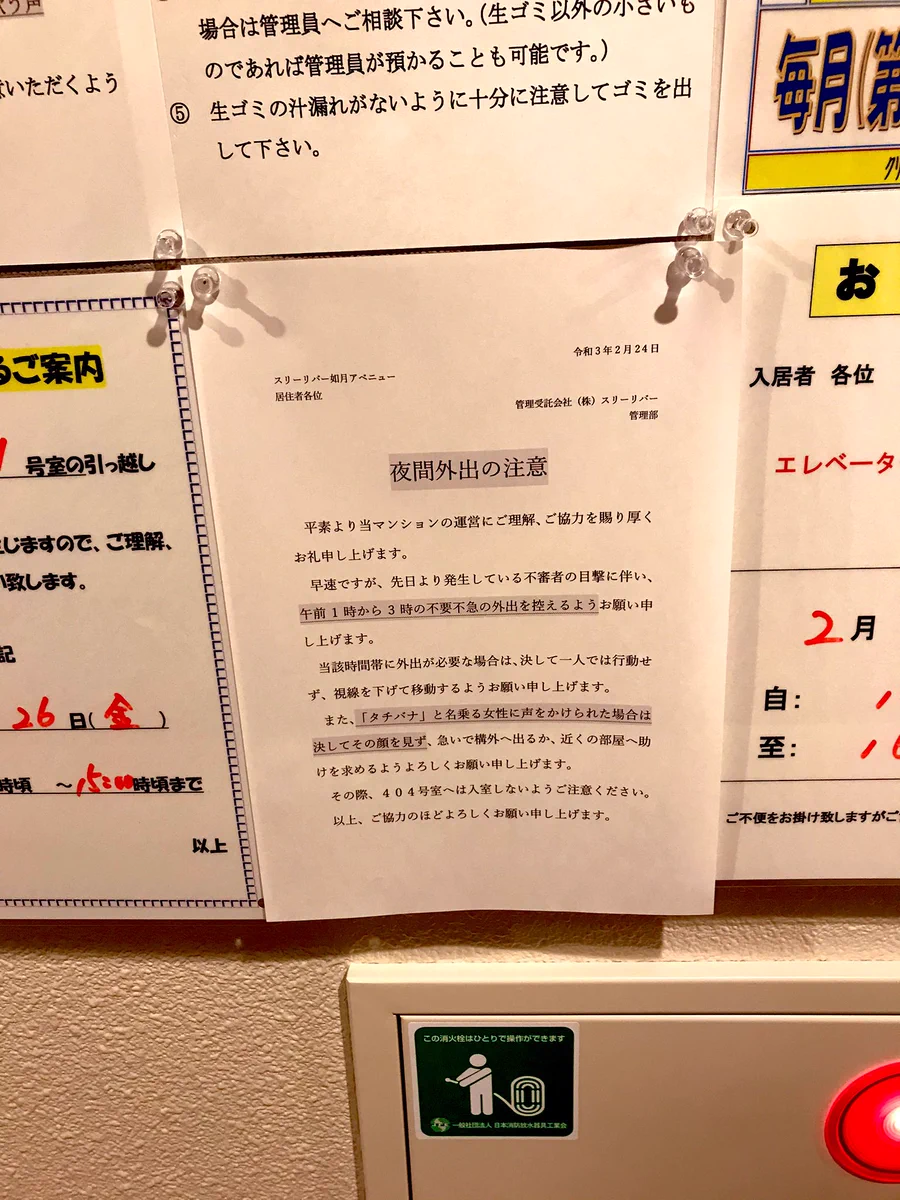 いただくよう
場合は管理員へご相談下さい。（生ゴミ以外の小さいも
のであれば管理員が預かることも可能です。）
⑤ 生ゴミの汁漏れがないように十分に注意してゴミを出
して下さい。
毎月(第
るご案内
号室の引っ越し
生じますので、ご理解、
い致します。
記
26日(金)
時頃 ～15:00時頃まで
以上
令和３年２月２４日
スリーリバー如月アベニュー
居住者各位
管理受託会社（株）スリーリバー
管理部
夜間外出の注意
平素より当マンションの運営にご理解、ご協力を賜り厚く
お礼申し上げます。
早速ですが、先日より発生している不審者の目撃に伴い、
午前１時から３時の不要不急の外出を控えるようお願い申
し上げます。
当該時間帯に外出が必要な場合は、決して一人では行動せ
ず、視線を下げて移動するようお願い申し上げます。
また、「タチバナ」と名乗る女性に声をかけられた場合は
決してその顔を見ず、急いで構外へ出るか、近くの部屋へ助
けを求めるようよろしくお願い申し上げます。
その際、４０４号室へは入室しないようご注意ください。
以上、ご協力のほどよろしくお願い申し上げます。
お
入居者 各位
エレベータ
2月
自：
至：
ご不便をお掛け致しますがご
この消火栓はひとりで操作ができます
一般社団法人 日本消防放水器具工業会